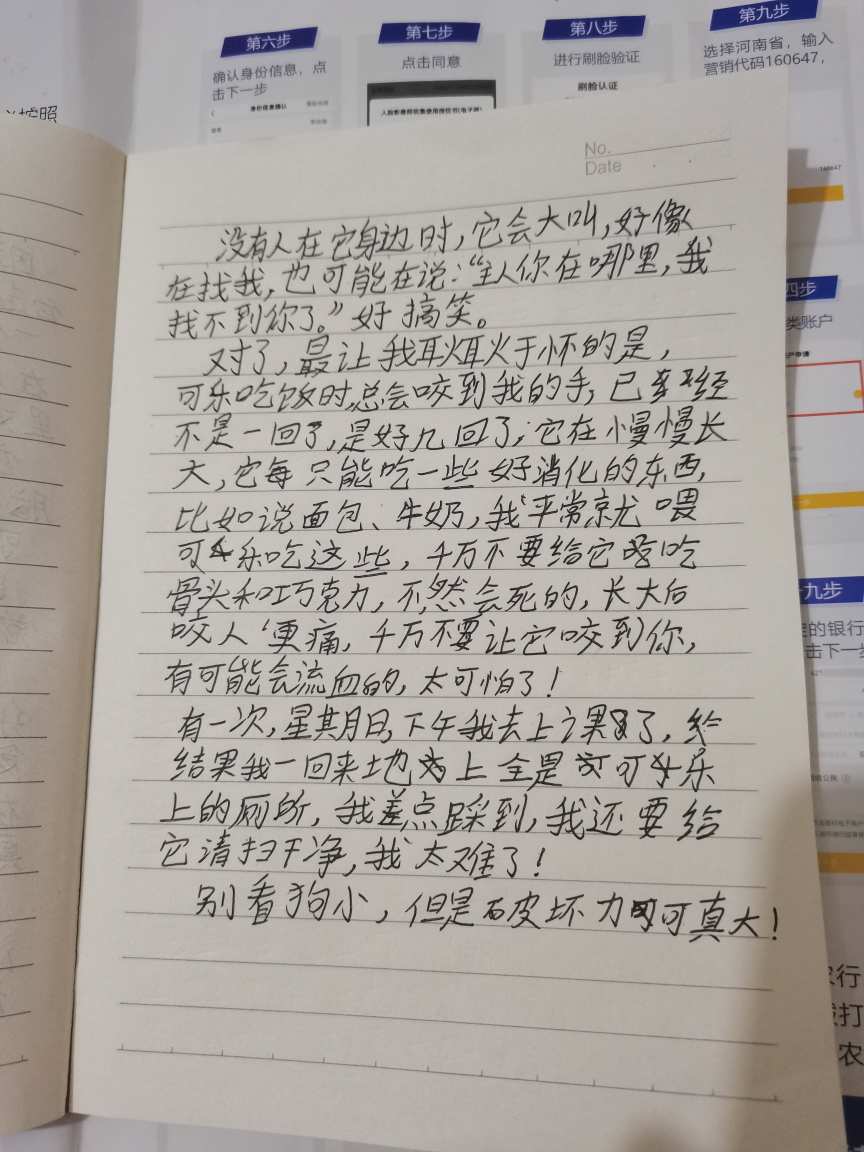 第六步
确认身份信息，点
击下一步
身份信息确认
第七步
点击同意
第八步
进行刷脸验证
刷脸认证
第九步
选择河南省，输入
营销代码160647，
160647
按照
No.
Date
没有人在它身边时，它会大叫，好像
在找我，也可能在说：“主人你在哪里，我
找不到你了。”好搞笑。
对了，最让我耿耿于怀的是，
可乐吃饭时，总会咬到我的手，已经
不是一回了，是好几回了，它在慢慢长
大，它每只能吃一些好消化的东西，
比如说面包、牛奶，我平常就喂
可乐吃这些，千万不要给它吃
骨头和巧克力，不然会死的，长大后
咬人更痛，千万不要让它咬到你，
有可能会流血的，太可怕了！
有一次，星期日，下午我去上课了，
结果我一回来地上全是可乐
上的厕所，我差点踩到，我还要给
它清扫干净，我太难了！
别看狗小，但是破坏力可真大！
四步
类账户
十九步
的银行
击下一步
农行
拨打
农